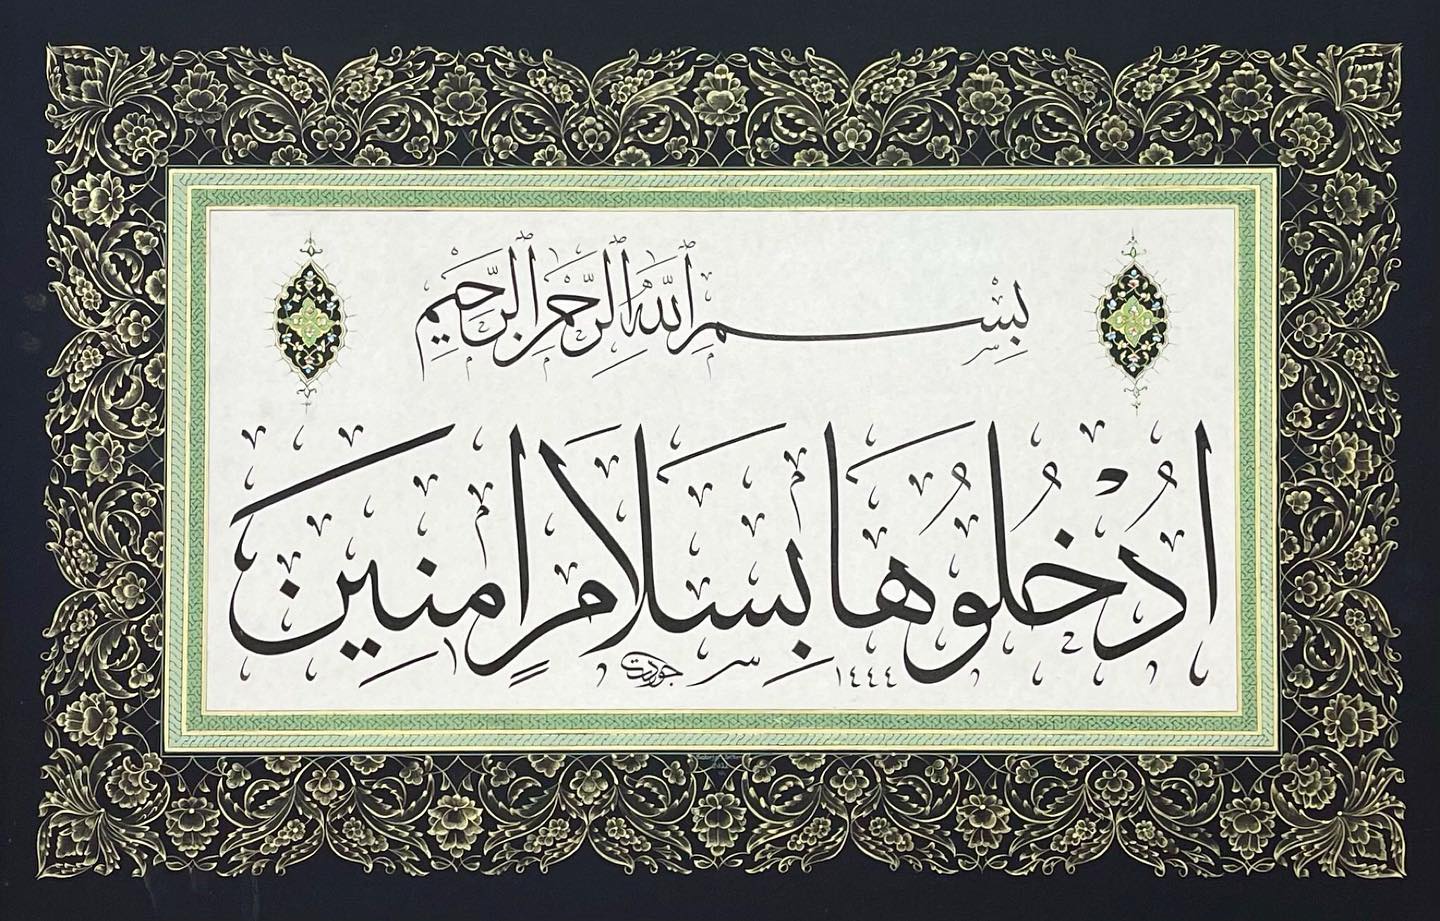 بِسْمِ اللّٰهِ الرَّحْمٰنِ الرَّحِيمِ
اُدْخُلُوهَا بِسَلَامٍ اٰمِنِينَ
جودت ١٤٤٤